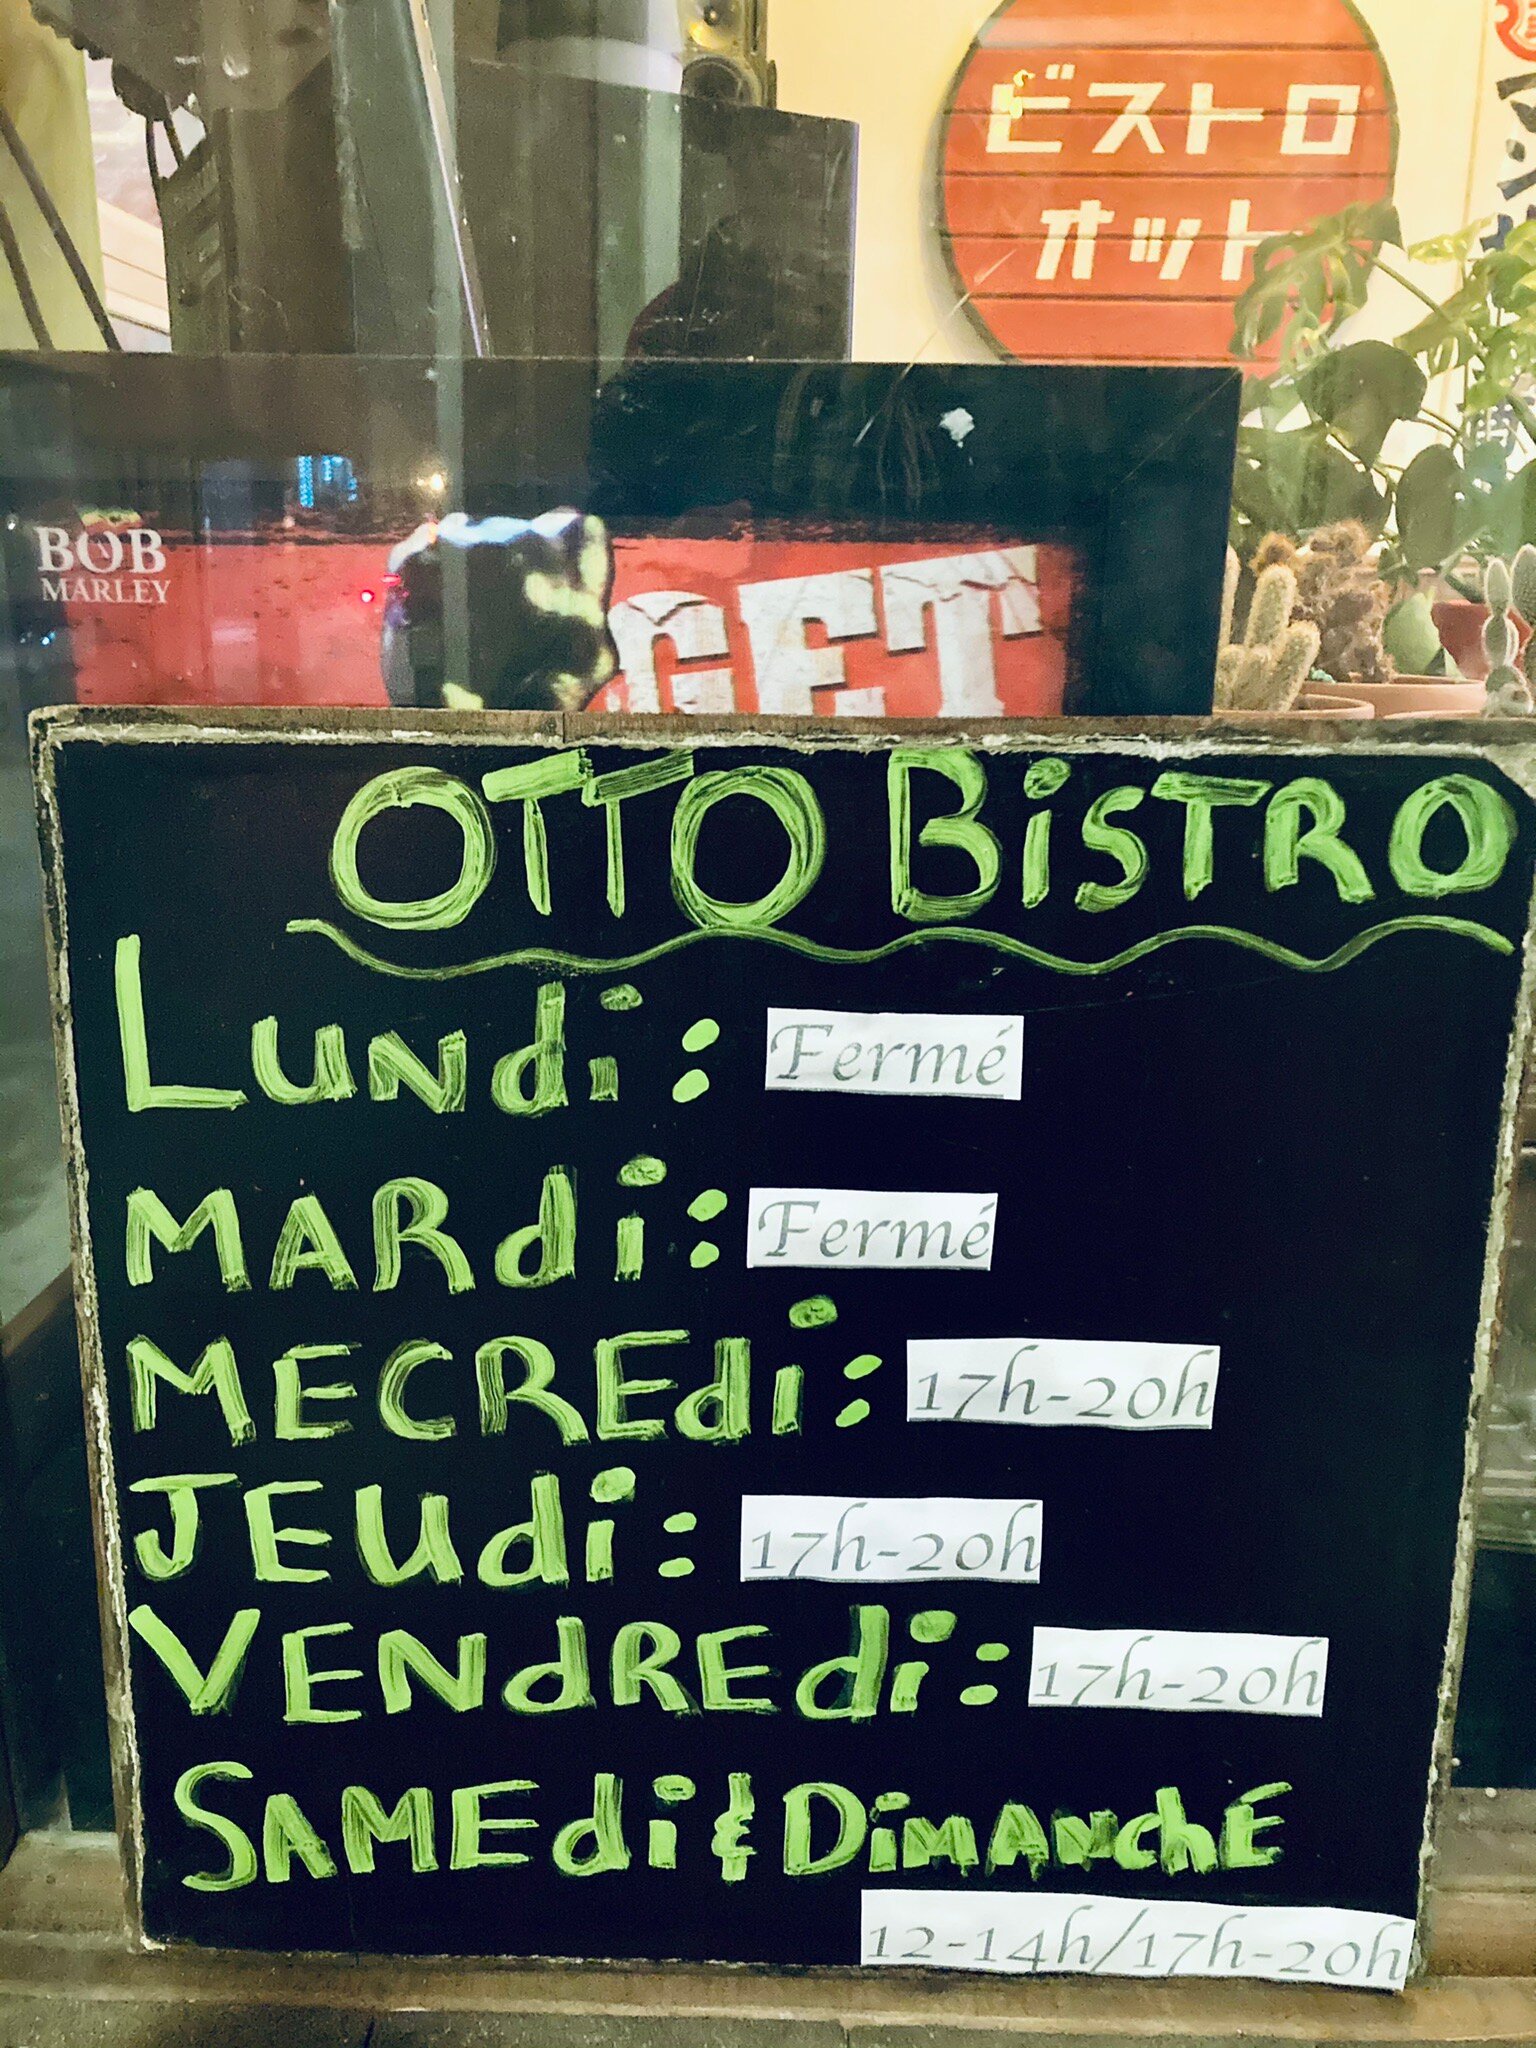 ビストロ
オット
BOB
MARLEY
GET
OTTO BiSTRO
LUNdi : Fermé
MARdi : Fermé
MECREdi : 17h-20h
JEUdi : 17h-20h
VENdREdi : 17h-20h
SAMEdi & DiMANchE
12-14h/17h-20h